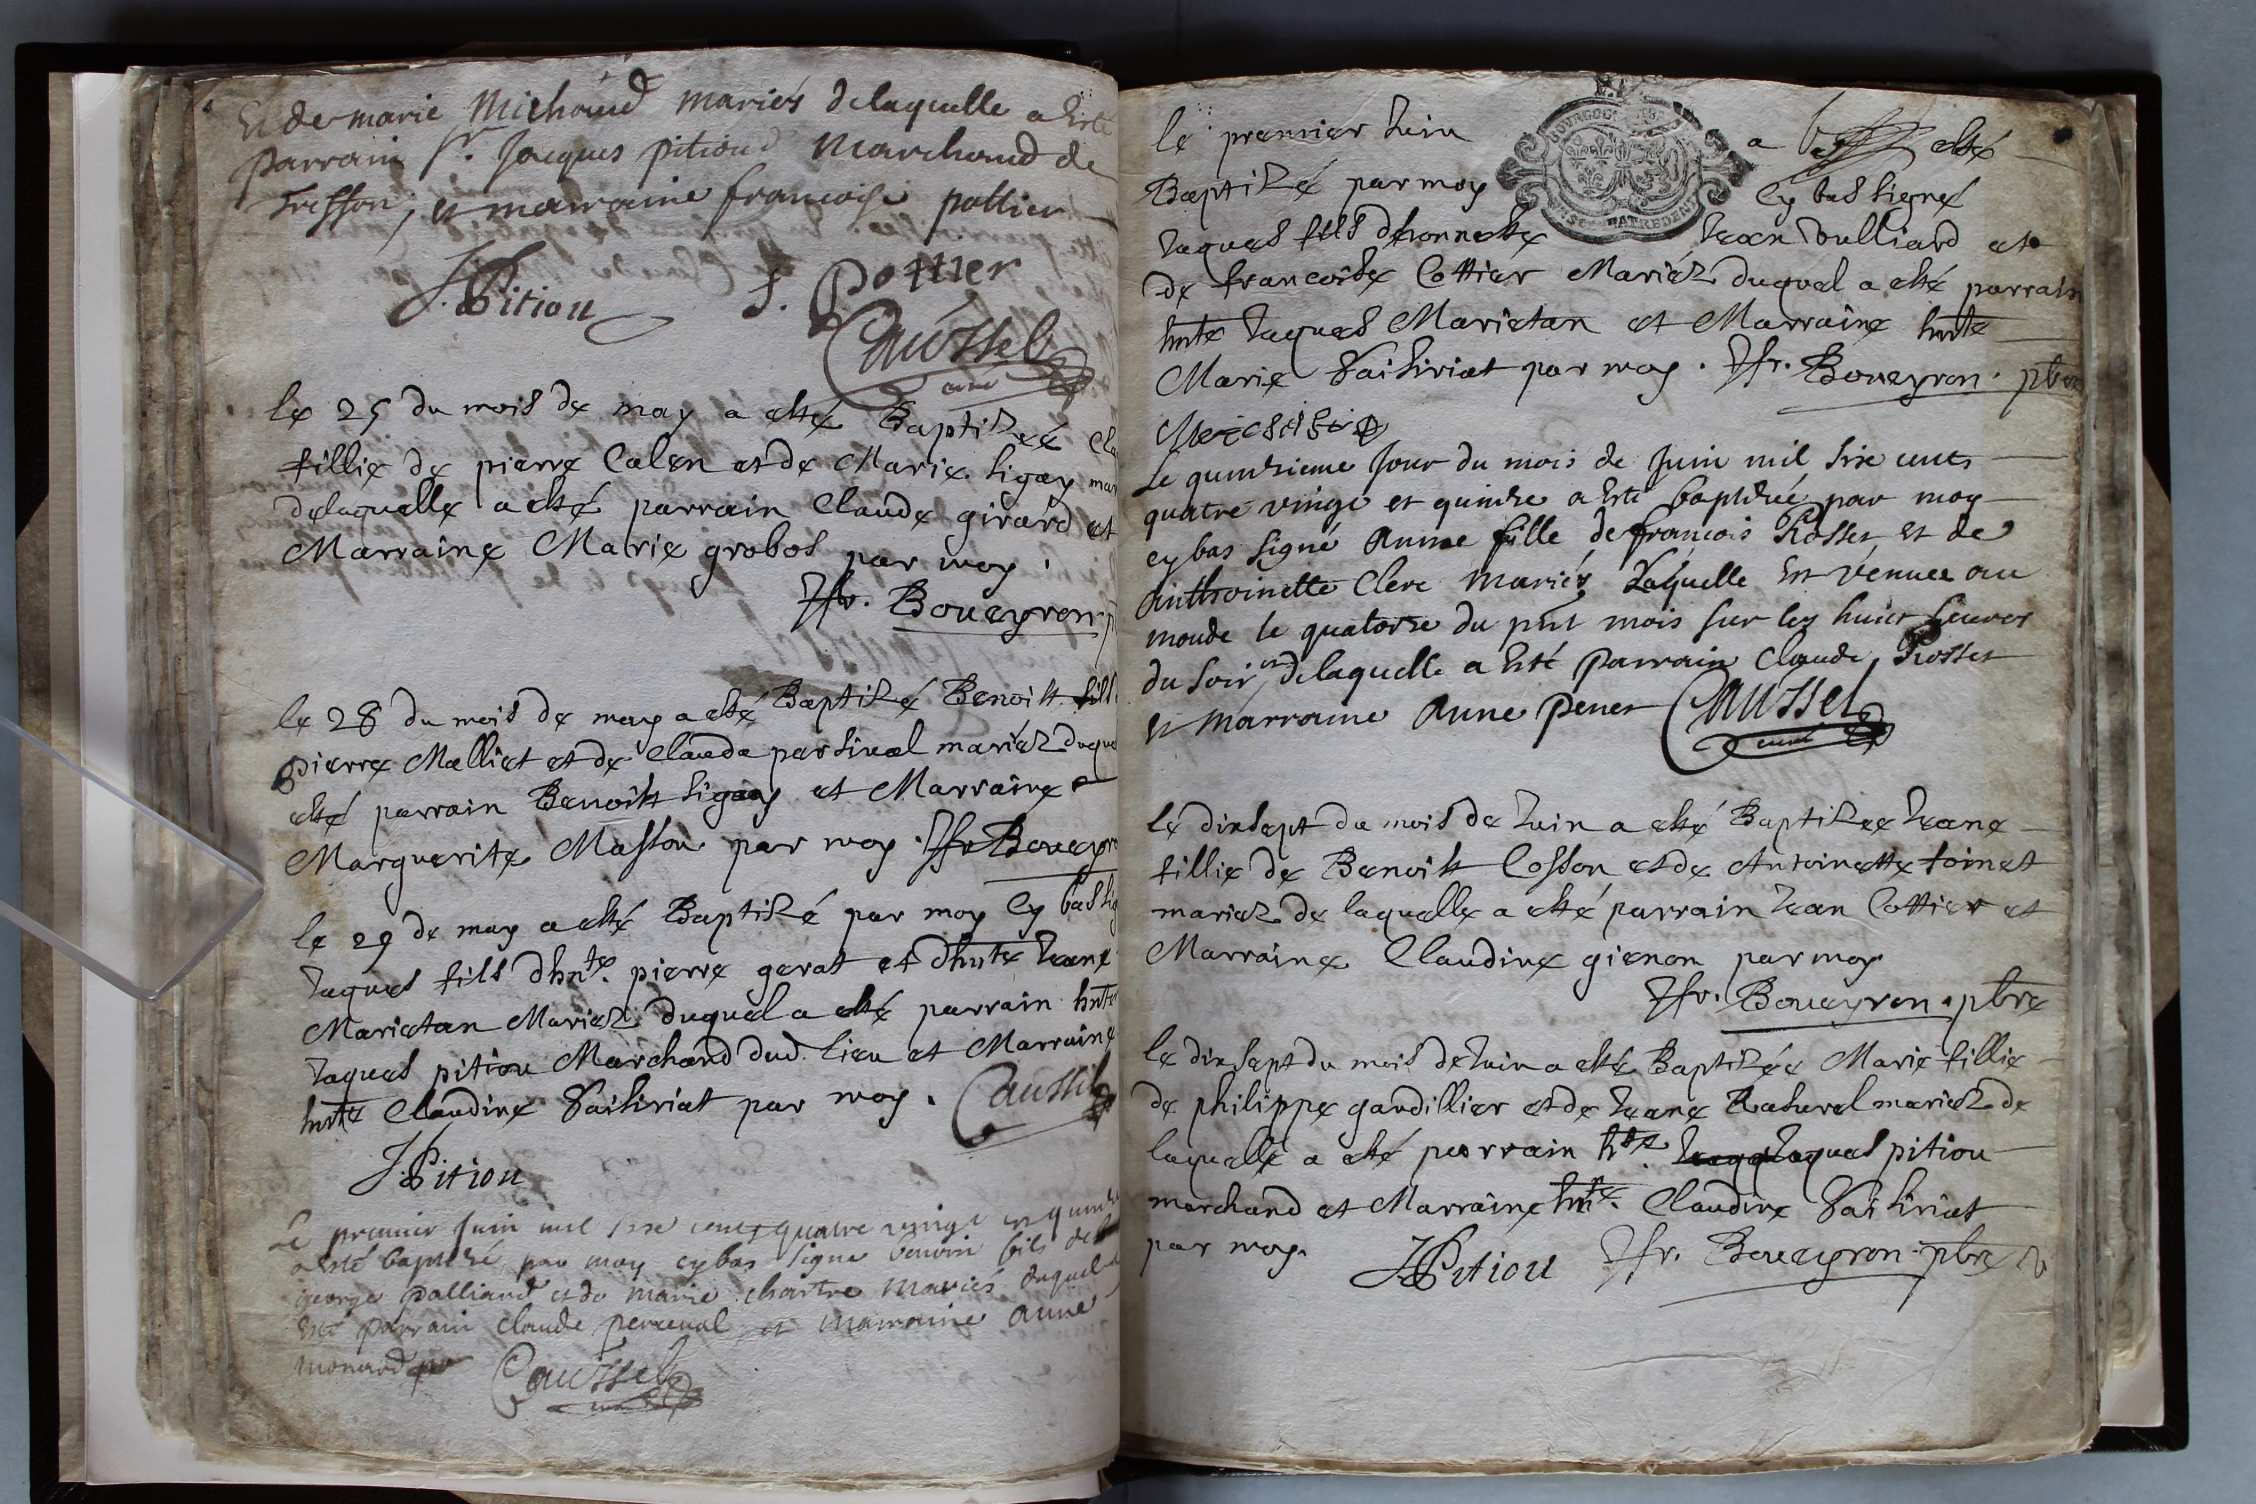 Et de marie Michoud mariés delaquelle a Esté
parrain Sr. Jacques pitioud Marchand de
Treffon, et marraine francoise pottier
J. Pition F. Pottier
Caussel
curé
le 25 du mois de may a esté Baptisée
fillie de pierre Calen et de Marie Sigay
delaquelle a esté parrain Claude girard et
Marraine Marie grobos par moy.
Jfr. Boueyron
le 28 du mois de may a esté Baptisé Benoist fils
pierre Malliet et de Claude parsival mariez
esté parrain Benoist Sigay et Marraine
Marguerite Masson par moy. Jfr Boueyron
le 29 de may a esté Baptisé par moy Cy bas
Jaques fils dhnte. pierre gerat et dhnte Jeane
Marietan Mariez duquel a esté parrain hnte
Jaques pitiou Marchand dud. lieu et Marraine
hnte Claudine Vaisiriat par moy. Caussel
J. Pitiou
Le premier Juin mil six cents quatre vingt et
a esté baptisé par moy cybas signé benoin fils de
george Palliand et de marie chartre Mariés duquel a
Esté parrain Claude perceval et marraine Anne
monard Caussel
le premier Juin a esté
Baptisé par moy Cy bas signé
Jaques fils dhonneste Jean Vulliard et
de francoise Cottier Mariéz duquel a esté parrain
hnte Jaques Marietan et Marraine hnte
Marie Vaisiriat par moy. Jfr. Boueyron. pbre
Le quinzieme Jour du mois de Juin mil six cents
quatre vingt et quinze a Esté baptizée par moy
cybas signé Anne fille de françois Rosset et de
Anthoinette Clerc Mariés Laquelle est venue au
monde le quatorze du pnt mois sur les huict heures
du soir et delaquelle a Esté Parrain Claude Rosset
et marraine Anne Penet Caussel
curé
le dixsept du mois de Juin a esté Baptisee Jeane
fillie de Benoist Cosson et de Antoinette toinet
mariez de laquelle a esté parrain Jean Cottier et
Marraine Claudine gienon par moy
Jfr. Boueyron. pbre
le dixsept du mois de Juin a esté Baptisée Marie fillie
de philippe gaudillier et de Jeane Rathurel mariez de
laquelle a esté parrain hte. Jaques pitiou
marchand et Marraine hnte. Claudine Vaisiriat
par moy. J. Pitiou Jfr. Boueyron. pbre